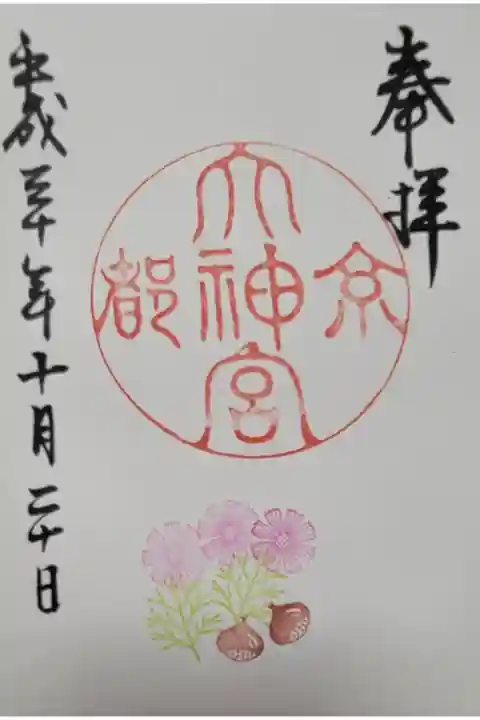 奉拝
京
大神宮
都
平成三十年十月二十日